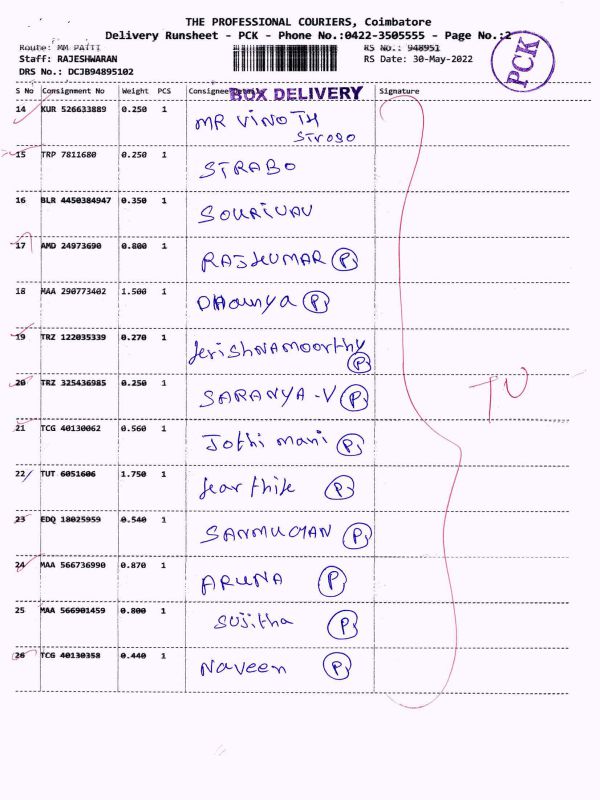 THE PROFESSIONAL COURIERS, Coimbatore
Delivery Runsheet - PCK - Phone No.:0422-3505555 - Page No.:2
Route: MM PATTI RS No.: 948951
Staff: RAJESHWARAN RS Date: 30-May-2022
DRS No.: DCJB94895102
PCK
S No Consignment No Weight PCS Consignee Signature
BOX DELIVERY
14 KUR 526633889 0.250 1 MR VINOTH
Strobo
15 TRP 7811680 0.250 1 STRABO
16 BLR 4450384947 0.350 1
17 AMD 24973690 0.800 1 RAJKUMAR P
18 MAA 290773402 1.500 1 Dhanya P
19 TRZ 122035339 0.270 1 krishnamoorthy
P
20 TRZ 325436985 0.250 1 SARANYA-V P
21 TCG 40130062 0.560 1 Jothi mani P
22 TUT 6051606 1.750 1 karthik P
23 EDQ 18025959 0.540 1 SANMUGAN P
24 MAA 566736990 0.870 1 ARUNA P
25 MAA 566901459 0.800 1 Sujitha P
26 TCG 40130358 0.440 1 Naveen P